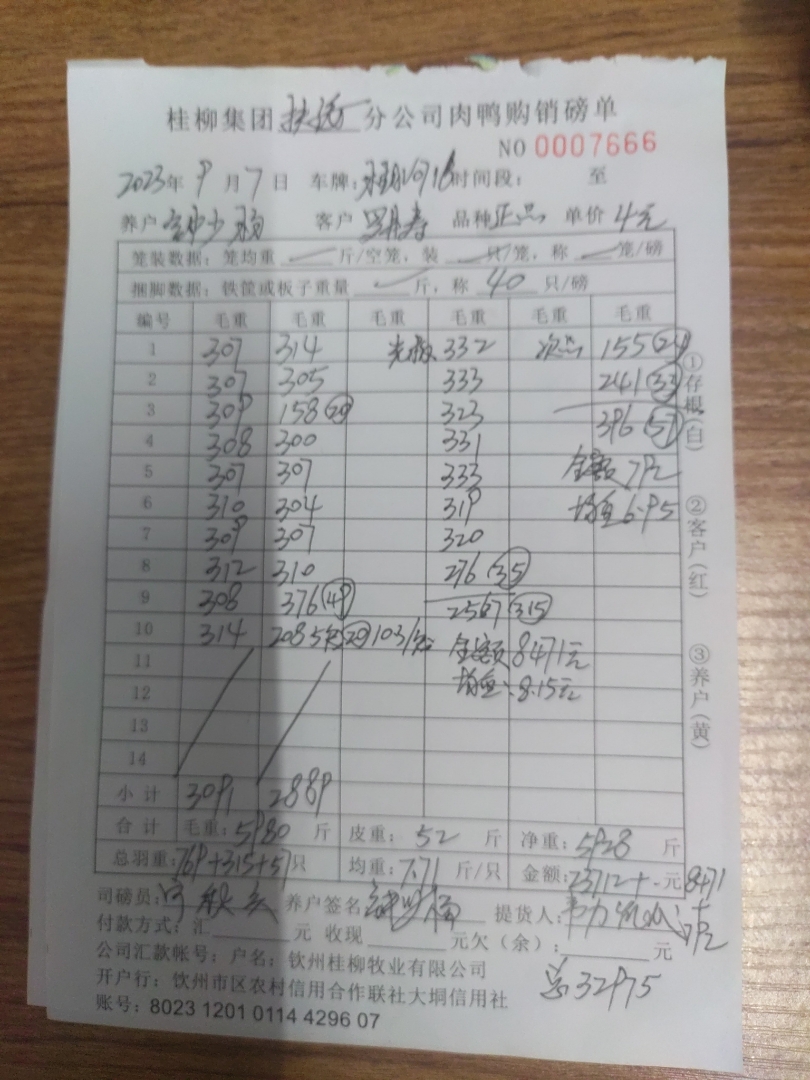 桂柳集团 扶绥 分公司肉鸭购销磅单
NO 0007666
2023年 9月 7日 车牌: 时间段: 至
养户 客户 品种 正品 单价 4元
笼装数据: 笼均重 斤/空笼, 装 只/笼, 称 笼/磅
捆脚数据: 铁筐或板子重量 斤, 称 40 只/磅
编号 毛重 毛重 毛重 毛重 毛重 毛重
1 307 314 光鸭 332 次品 155 (24)
2 307 305 333 241 (33)
3 309 158 (20) 323 396 (57)
4 308 300 331
5 307 307 333 金额 792
6 310 304 319 均重 6.95
7 309 307 320
8 312 310 276 (35)
9 308 376 (49) 2567 (315)
10 314 208 (20) 103 金额 8471元
11 均重: 8.15
12
13
14
小计 3091 2889
合计 毛重: 5980 斤 皮重: 52 斤 净重: 5928 斤
总羽重: 769+315+57 只 均重: 7.71 斤/只 金额: 23712+ 元 8471
司磅员: 养户签名 提货人: +792
付款方式: 汇 元 收现 元欠(余): 元
公司汇款帐号: 户名: 钦州桂柳牧业有限公司
总32975
开户行: 钦州市区农村信用合作联社大垌信用社
账号: 8023 1201 0114 4296 07
①存根(白)
②客户(红)
③养户(黄)